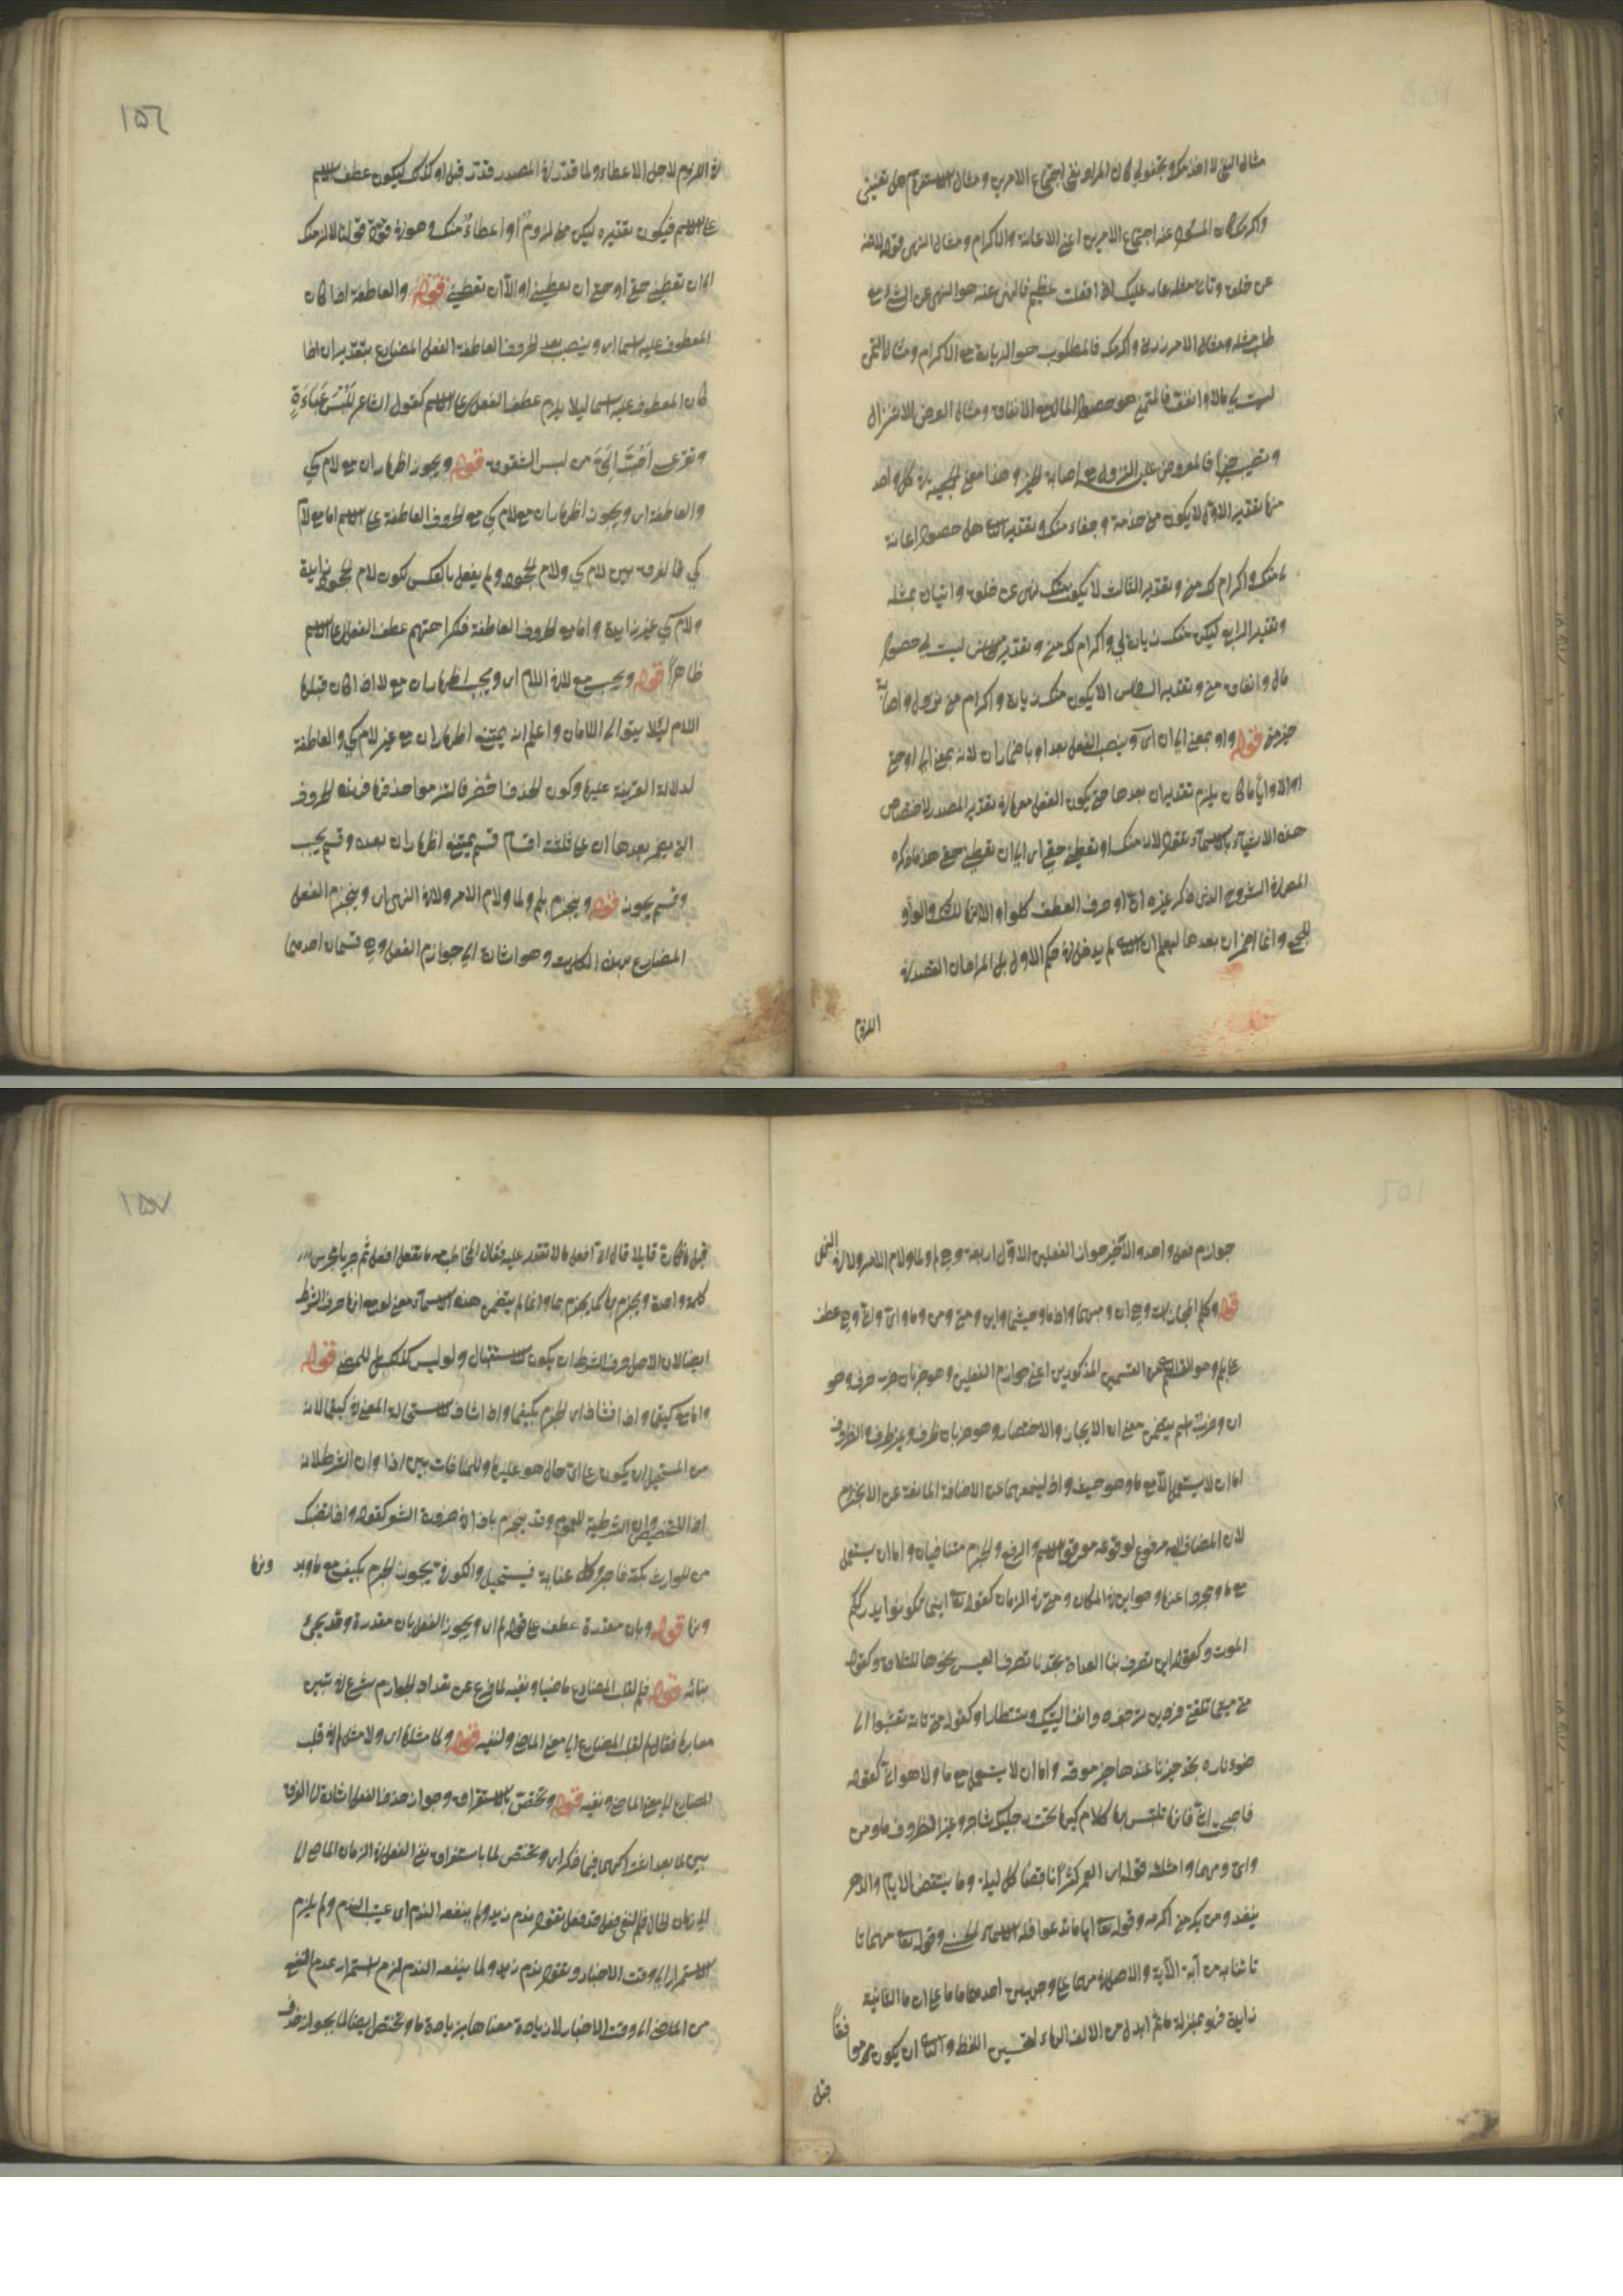 مثال النفي لا اخذمك وتجفوني فان المراد نفي اجتماع الامرين ومثال الاستفهام هل تعينني
واكرمك فان المستفهم عنه اجتماع الامرين اعني الاعانة والاكرام ومثال النهي قوله لا تنه
عن خلق وتاتي مثله عار عليك اذا فعلت عظيم فالمنهي عنه هو النهي عن الشيء مع
طلب مثله ومثال الامر زرني واكرمك فالمطلوب هو الزيارة مع الاكرام ومثال التمني
ليت لي مالا وانفق فالمتمنى هو حصول المال مع الانفاق ومثال العرض الا تنزل
وتصيب خيرا فالمعروض عليه النزول مع اصابة الخير وهذا معنى الجمعية في كل واحد
منها تقدير الاول لا يكون مني خدمة وجفاء منك وتقدير الثاني هل حصول اعانة
منك واكرام لك مني وتقدير الثالث لا يكون منك نهي عن خلق واتيان بمثله
وتقدير الرابع ليكن منك زيارة لي واكرام لك مني وتقدير الخامس ليت لي حصول
مال وانفاق مني وتقدير السادس الا يكون منك زيارة واكرام من نزول واصابة
خير مني قوله واو بمعنى الى ان اي وينصب الفعل بعد او باضمار ان لانه بمعنى الى او حتى
او الا وايا ما كان يلزم تقدير ان بعدها حتى يكون الفعل معها في تقدير المصدر لاختصاص
هذه الاشياء بالاسماء تقول لالزمنك او تعطيني حقي اي الى ان تعطيني حقي هذا ما ذكره
المص في الشرح الذي ذكر غيره ان او حرف العطف كالواو الا انها لذلك والواو
للجمع وانما اضمر ان بعدها ليعلم ان الثاني لم يدخل في حكم الاول بل المراد ان القصد في
اللزوم
١٥٦
في اللزوم لاجل الاعطاء ولما قدر في المصدر قدر قبل او كذلك ليكون عطف الاسم
على الاسم فيكون تقديره ليكن مني لزوم او اعطاء منك وهو في قوة قولنا لالزمنك
الى ان تعطيني حقي او حتى ان تعطيني او الا ان تعطيني قوله والعاطفة اذا كان
المعطوف عليه اسما اي وينصب بعد الحروف العاطفة الفعل المضارع بتقدير ان اذا
كان المعطوف عليه اسما ليلا يلزم عطف الفعل على الاسم كقول الشاعر للبس عباءة
وتقر عيني احب الي من لبس الشفوف قوله ويجوز اظهار ان مع لام كي
والعاطفة اي ويجوز اظهار ان مع لام كي مع الحروف العاطفة على الاسم اما مع لام
كي فالفرق بين لام كي ولام الجحود ولم يفعل بالعكس لكون لام الجحود زايدة
ولام كي غير زايدة واما مع الحروف العاطفة فكراهتهم عطف الفعل على الاسم
ظاهرا قوله ويجب مع لا في اللام اي ويجب اظهار ان مع لا اذا كان قبلها
اللام ليلا يتوالى اللامان واعلم انه يمتنع اظهار ان مع غير لام كي والعاطفة
لدلالة القرينة عليها وكون الحذف اخصر فالتزموا حذفها فهذه الحروف
التي يضمر بعدها ان على ثلثة اقسام قسم يمتنع اظهار ان بعده وقسم يجب
وقسم يجوز قوله وينجزم بلم ولما ولام الامر ولا في النهي اي وينجزم الفعل
المضارع بهذه الكلمات وهو اشارة الى جوازم الفعل وهي قسمان احدهما
جوازم فعل واحد والآخر جوازم الفعلين الاول اربعة وهي لم ولما ولام الامر ولا في النهي
قوله وكلم المجازات وهي ان ومهما واذما وحيثما واين ومتى ومن وما واي وانى وهي عطف
على لم وهو القسم الثاني من القسمين المذكورين اعني جوازم الفعلين وهو ضربان ضرب حرف وهو
ان وضرب اسم يتضمن معنى ان للايجاز والاختصار وهو ضربان ظرف وغير ظرف والظروف
اما ان لا يستعمل الا مع ما وهو حيث واذ ليمنعهما عن الاضافة المانعة عن الانجزام
لان المضاف اليه مرفوع لوقوعه موقع الاسم والرفع والجزم متنافيان واما ان يستعمل
مع ما ومجردا عنها وهو اين في المكان ومتى في الزمان كقوله تعالى اينما تكونوا يدرككم
الموت وكقوله اين تصرف بنا العداة تجدنا نصرف العيس نحوها للتلاقي وكقوله
متى ما تلقني فردين ترجف روانف اليتيك وتستطارا وكقوله متى تاته تعشوا الى
ضوء ناره تجد خير نار عندها خير موقد واما ان لا يستعمل مع ما ولا هو انى كقوله
فاصبحت انى تاتها تلتبس بها كلا مركبيها تحت رجليك شاجر وغير الظروف ما ومن
واي ومهما وامثلته قوله ارى العمر كنزا ناقصا كل ليلة وما ينقص الايام والدهر
ينفد ومن يكرمني اكرمه وقوله تعالى ايا ما تدعوا فله الاسماء الحسنى وقوله تعالى مهما تا
تاتنا به من آية الآية والاصل في مهما على وجهين احدهما ما ما على ان ما الثانية
زايدة فهو بمنزلة ما ثم ابدل من الالف الهاء لتحسين اللفظ والثاني ان يكون مه موافقا
قبل
١٥٧
قبل ما كان قايلا قال اذا افعل ما لا تقدر عليه فقال المخاطب مه ما تفعل افعل ثم جريا مجرى
كلمة واحدة ويجزم بها كما يجزم بما وانما لم يتضمن هذه الاسماء معنى لو مع انها حرف الشرط
ايضا لان الاصل في حرف الشرط ان يكون للاستقبال ولو ليس كذلك بل للمضي قوله
واما مع كيفما واذا فشاذ اي الجزم بكيفما واذا شاذ لاستحالة المعنى في كيفما لانه
من المستحيل ان يكون على اي حال هو عليها وللمنافات بين اذا وان الشرط لانه
اذا للتخصيص وان الشرطية للعموم وقد ينجزم باذا في ضرورة الشعر كقوله واذا تصبك
من الحوادث نكبة فاصبر فكل غيابة فستنجلي والكوفي يجوز الجزم بكيف مع ما وبد
ونها
ونها قوله وبان مقدرة عطف على قوله لم اي ويجوز الفعل بان مقدرة وقد يجيء
بيانه قوله فلم لقلب المضارع ماضيا ونفيه لما فرغ عن تعداد الجوازم شرع في تبيين
معانيها فقال لم لقلب المضارع الى معنى الماضي ولنفيه قوله ولما مثلها اي ولما مثل لم في قلب
المضارع الى معنى الماضي ونفيه قوله وتختص بالاستغراق وجواز حذف الفعل اشارة الى الفرق
بين لما بعد اشتراكهما فيما ذكر اي وتختص لما باستغراق نفي الفعل في الزمان الماضي الى
الى زمان الحال فلم لنفي فعل قد فعل تقول ندم زيد ولم ينفعه الندم اي عقيب الندم ولم يلزم
الاستمرار الى وقت الاخبار وتقول ندم زيد ولما ينفعه الندم لزم استمرار عدم النفع
من الماضي الى وقت الاخبار لان زيادة معناها بزيادة ما وتختص ايضا لما بجواز حذف